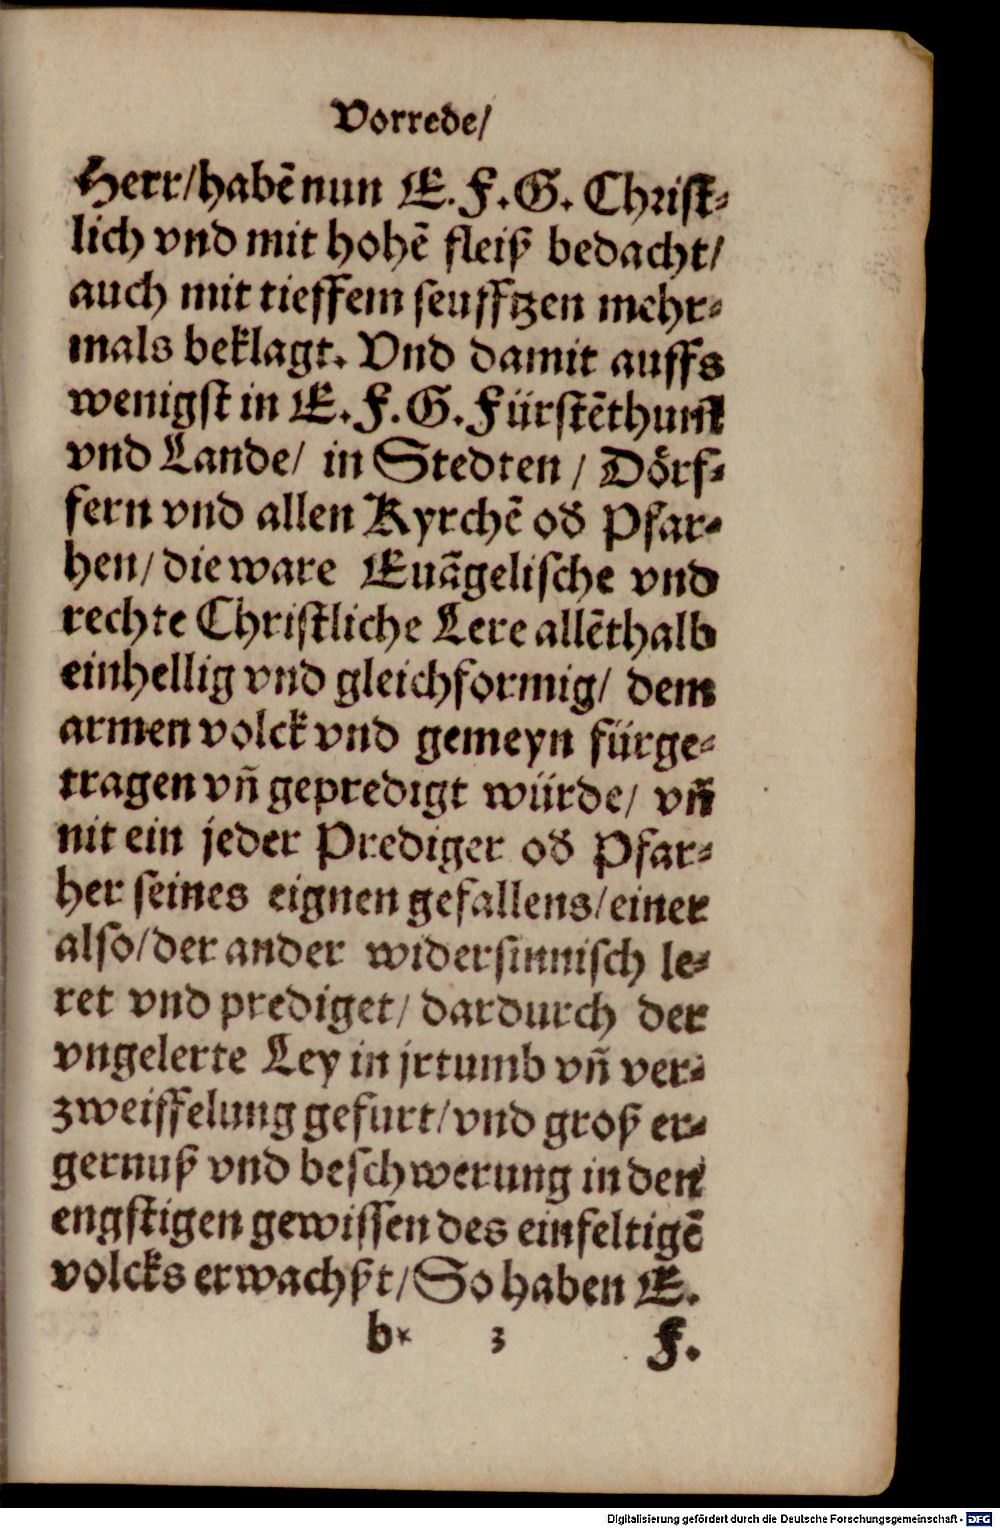 Vorrede/
Herr/habē nun E.F.G. Christ⸗
lich vnd mit hohē fleiß bedacht/
auch mit tieffem seufftzen mehr⸗
mals beklagt. Vnd damit auffs
wenigst in E.F.G. Fürstēthumb
vnd Lande/ in Stedten / Dörf⸗
fern vnd allen Kyrchē od̛ Pfar⸗
hen/ die ware Euāgelische vnd
rechte Christliche Lere allēthalb
einhellig vnd gleichformig/ dem
armen volck vnd gemeyn fürge⸗
tragen vn̄ gepredigt würde/ vn̄
nit ein jeder Prediger od̛ Pfar⸗
her seines eignen gefallens/einer
also/der ander widersinnisch le⸗
ret vnd prediget/ dardurch der
vngelerte Ley in jrtumb vn̄ ver⸗
zweiffelung gefurt/vnd groß er⸗
gernuß vnd beschwerung in den
engstigen gewissen des einfeltigē
volcks erwachßt/So haben E.
b* 3 F.
Digitalisierung gefördert durch die Deutsche Forschungsgemeinschaft - DFG